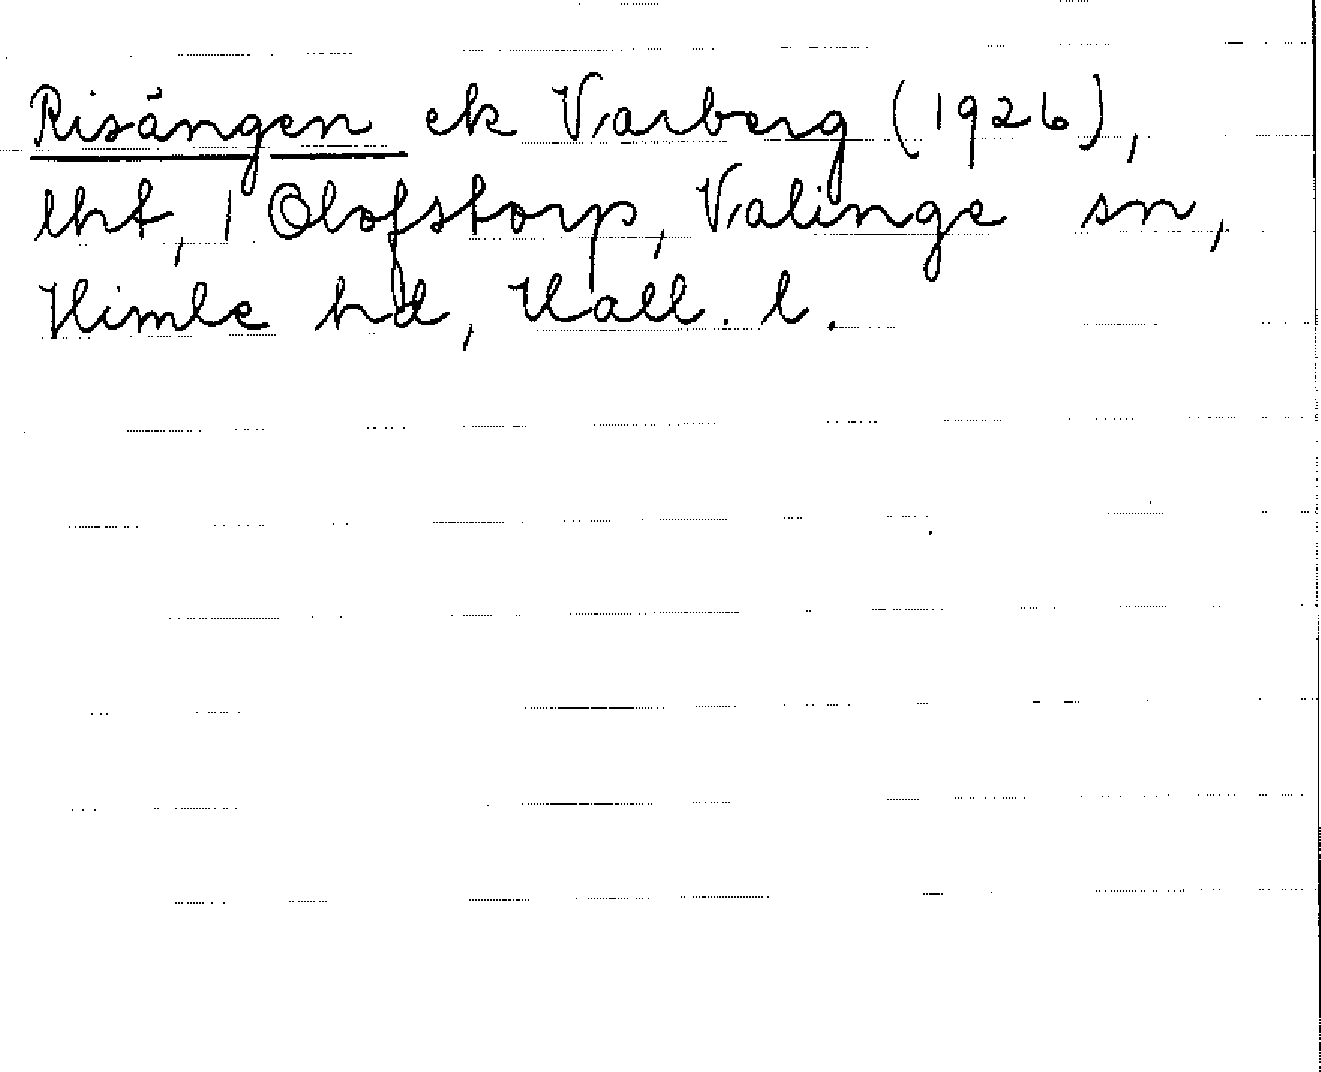 Risängen ek Varberg (1926),
lht, 1 Olofstorp, Valinge sn,
Himle hd, Hall. l.